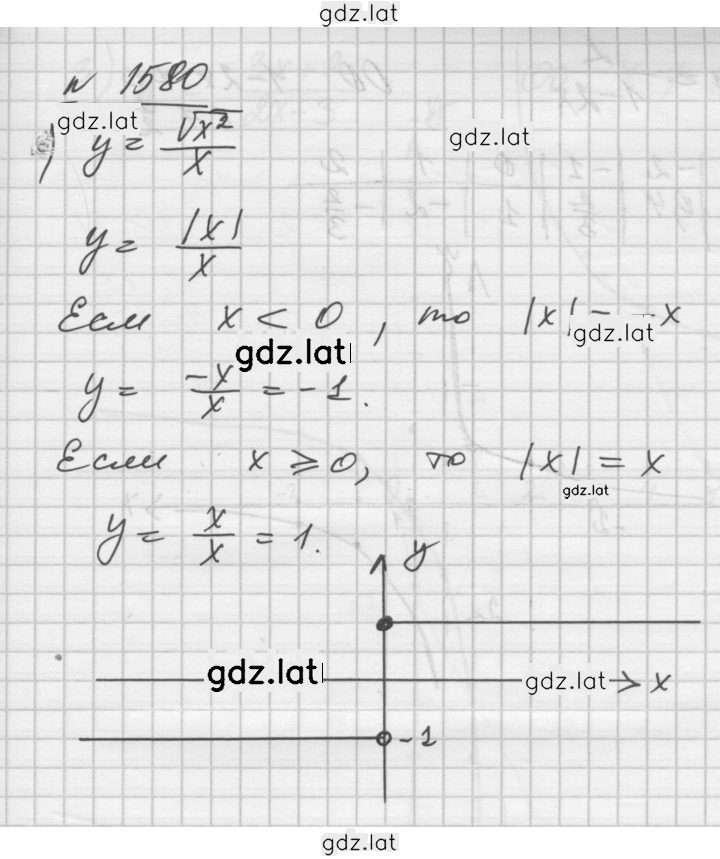 gdz.lat
№ 1580
gdz.lat
y = √x² / x
gdz.lat
y = |x| / x
Если x < 0, то |x| = -x
gdz.lat
gdz.lat
y = -x / x = -1.
Если x ⩾ 0, то |x| = x
gdz.lat
y = x / x = 1.
y
gdz.lat
gdz.lat
x
-1
gdz.lat